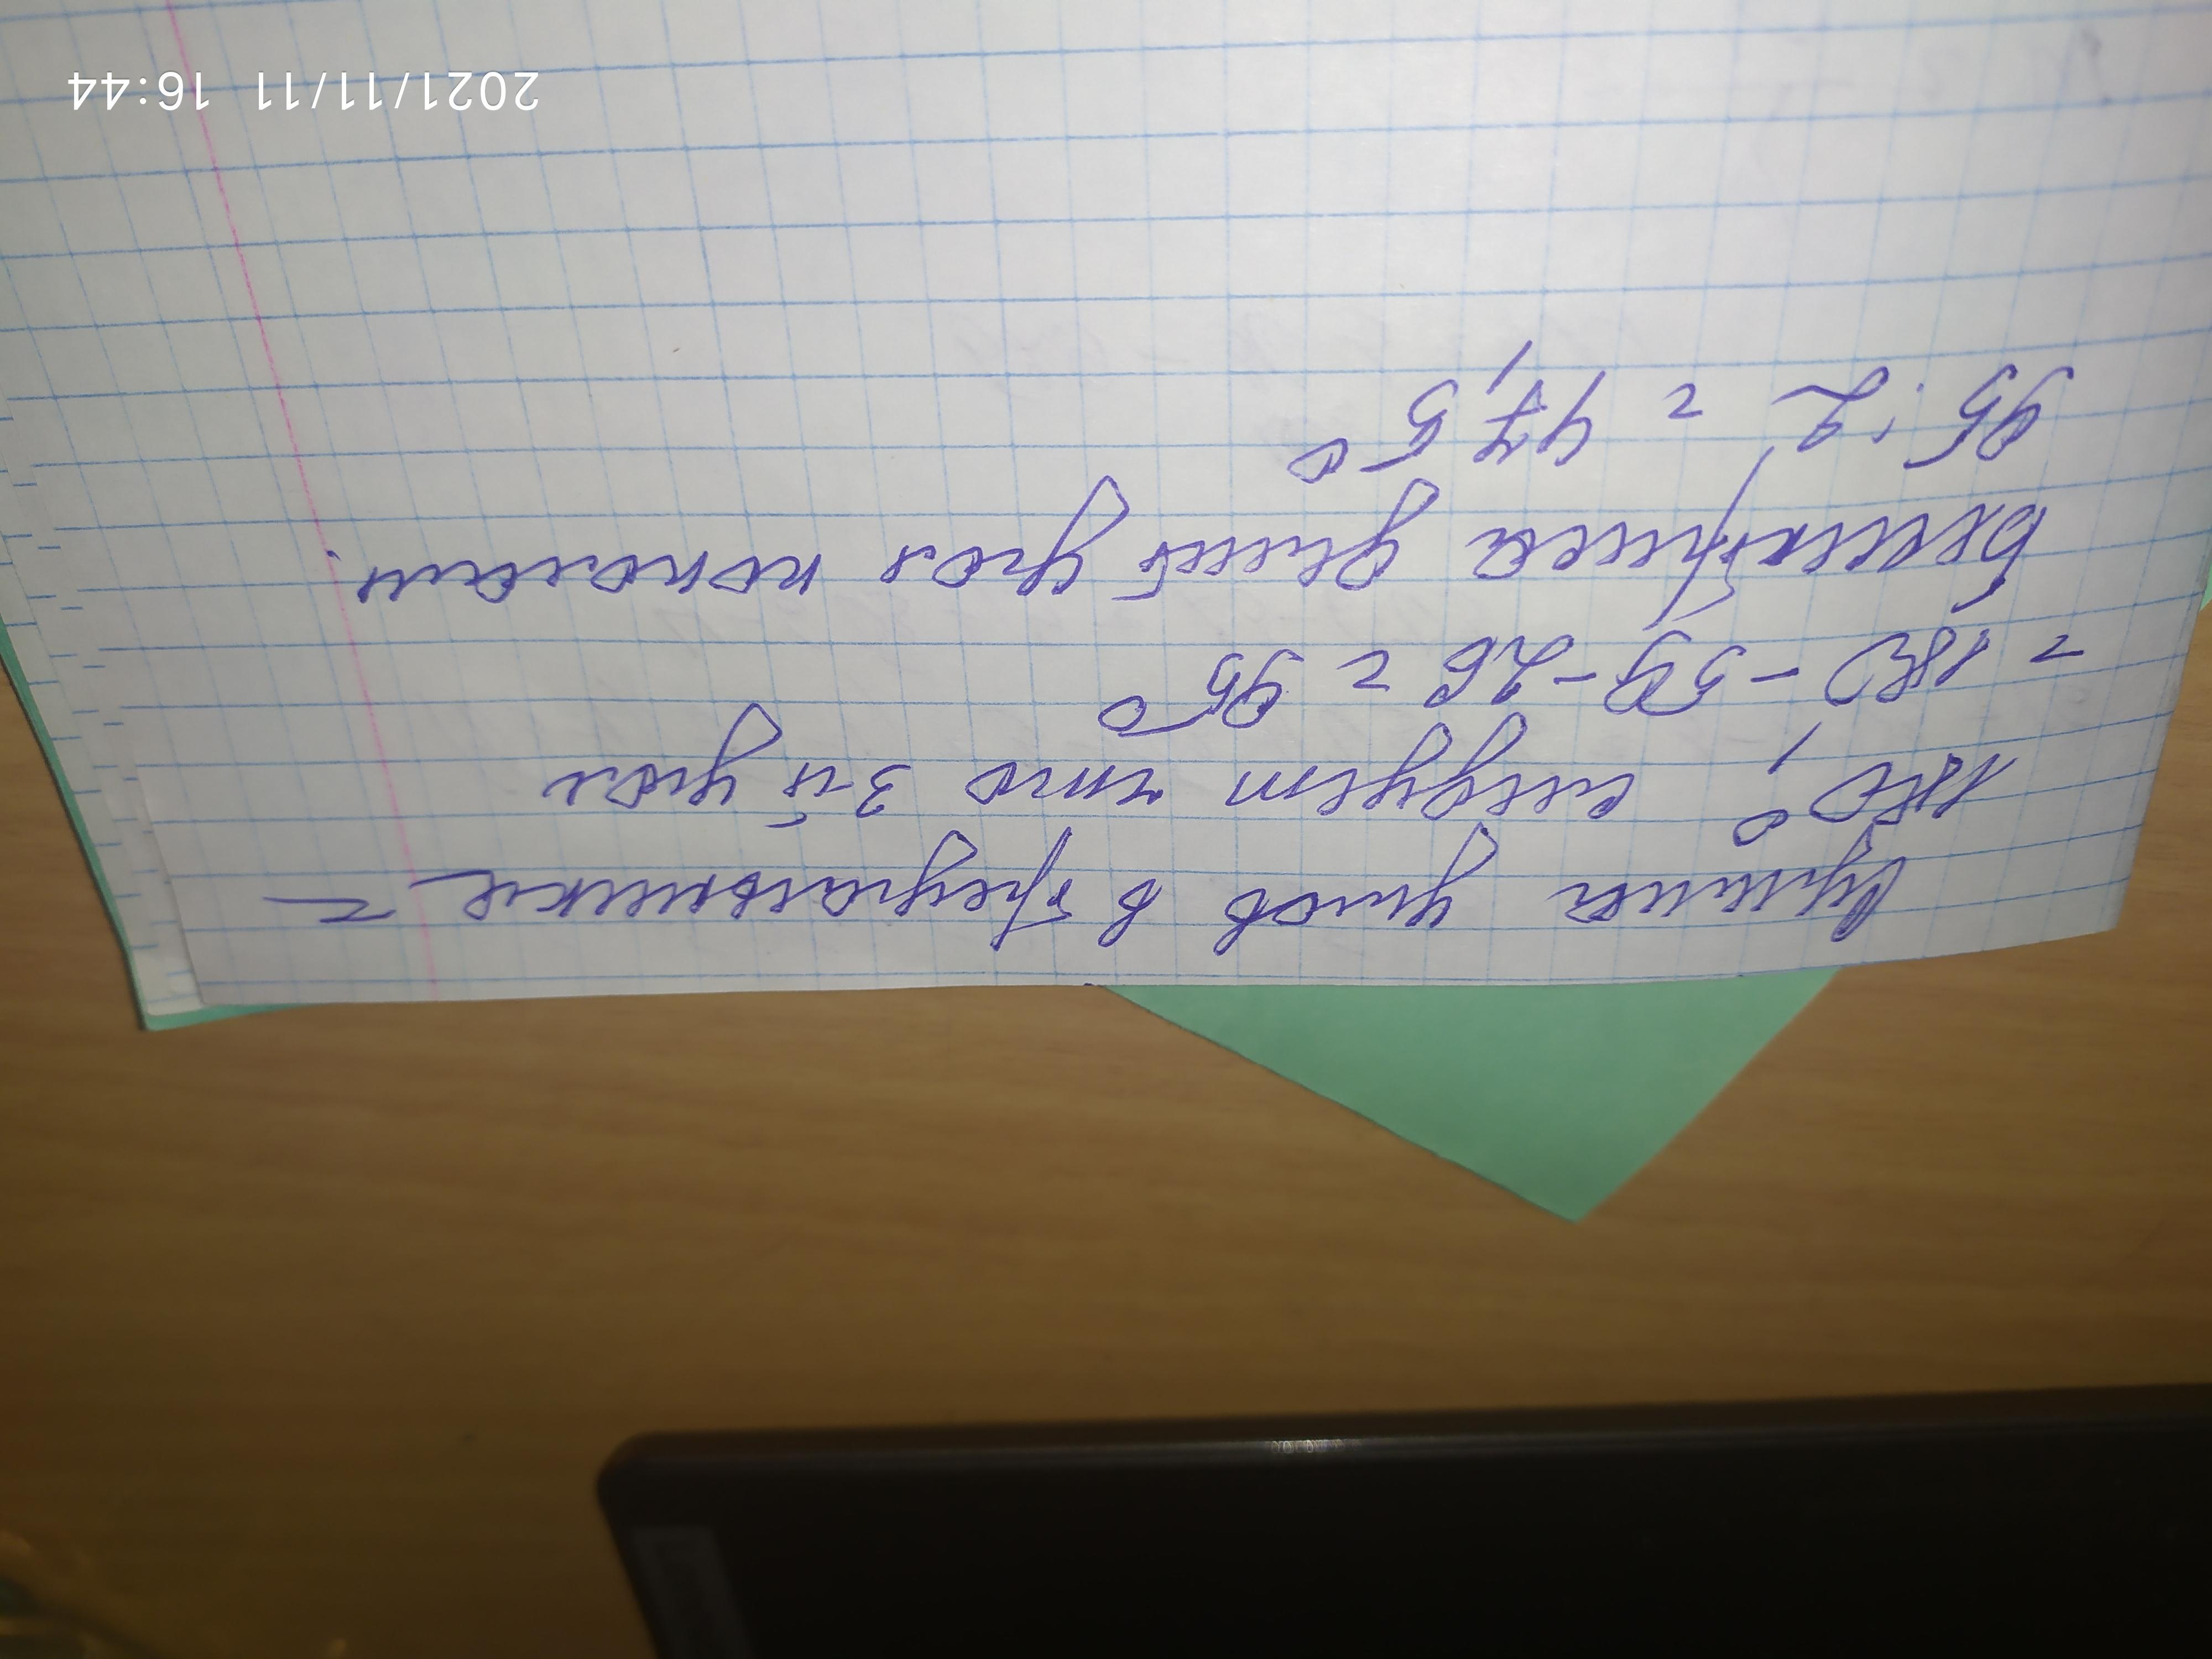 Сумма углов в треугольнике =
180°, следует что 3й угол
= 180 - 59 - 26 = 95°
Биссектрисса делит угол пополам.
95 : 2 = 47,5°
2021/11/11 16:44